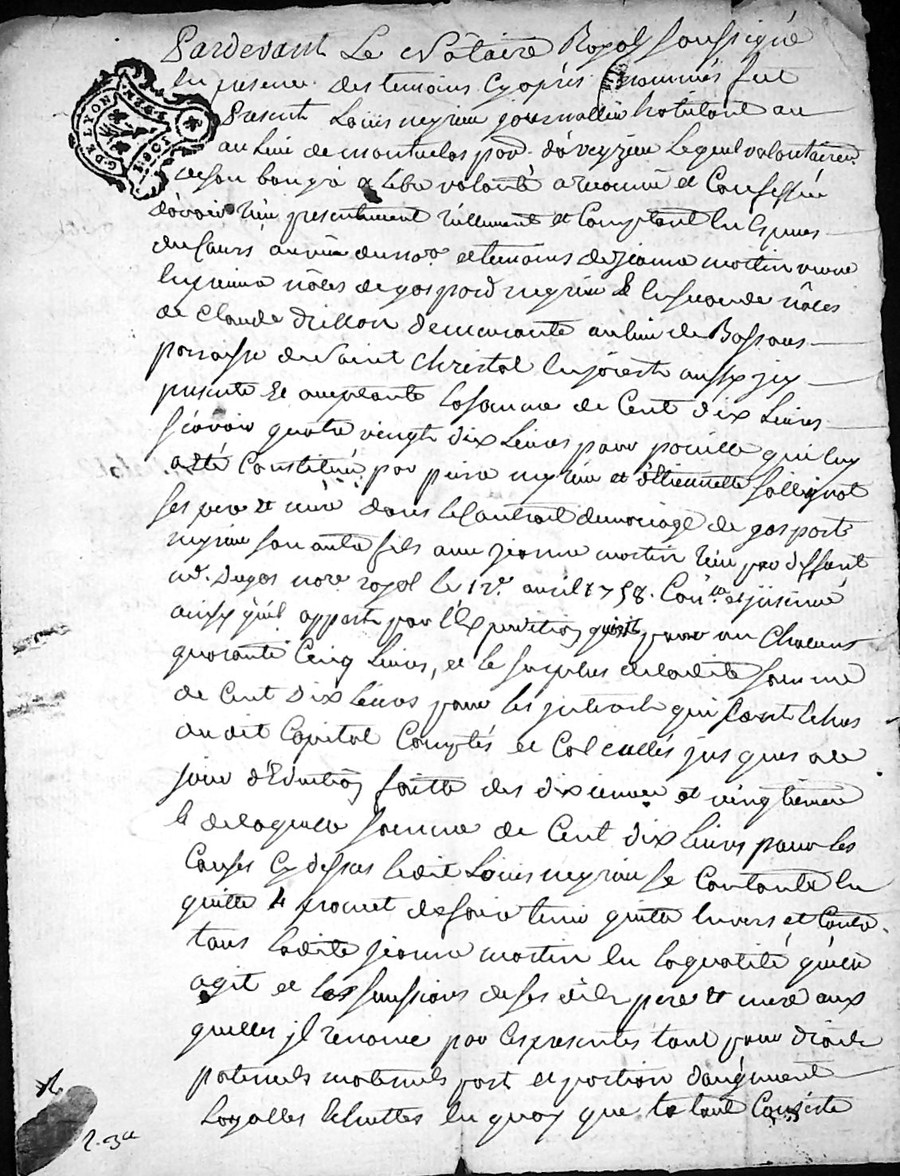 Pardevant Le Notaire Royal soussigné
En presence des temoins Cy après nommés fut
G. DE LYON
Present Louis neyrieu journallier habitant au
au Lieu de par. d'aveyzieu Lequel volontairem
de son bon gré & libre volonté a reconnu et Confessé
d'avoir reçu presentement réellement et Comptant En Espèces
du Cours au veu dud no.re et temoins de jeanne martin veuve
En premie nôces de gaspard neyrieu & En seconde nôces
de Claude drillon demeurante au lieu de Bossous
parroisse de Saint Christôt En forest aussy jcy
presente et acceptante La somme de Cent dix Livres
sçavoir quatre vingt dix Livres pour pareille qui luy
a été Constitué par pierre neyrieu et d'étiennette
ses pere et mere dans le Contrat de mariage de gaspard
neyrieu son autre fils avec jeanne martin reçu par deffunt
m.e Dugas no.re royal le 12.e avril 1758. Con.llé et jnsinué
ainsy qu'il appert par l'Expedition pour un Chacuns
quarante Cinq Livres, et le surplus de ladite somme
de Cent dix Livres pour les jnterests qui sont Echus
dudit Capital Comptés et Calcullés jusques a ce
jour d'Eduction faitte des dixieme et vingtieme
& de laquelle somme de Cent dix Livres pour les
Causes Cy dessus ledit Louis neyrieu se Contante En
quitte & promet de faire tenir quitte Envers et Contre
tous Ladite jeanne martin En la qualité qu'elle
agit et les successions de ses dits pere et mere aux
quelles jl renonce par Ces presentes tant pour droits
paternels maternels part et portion d'augment
Loyalles Echuttes En quoy que le tout Consiste